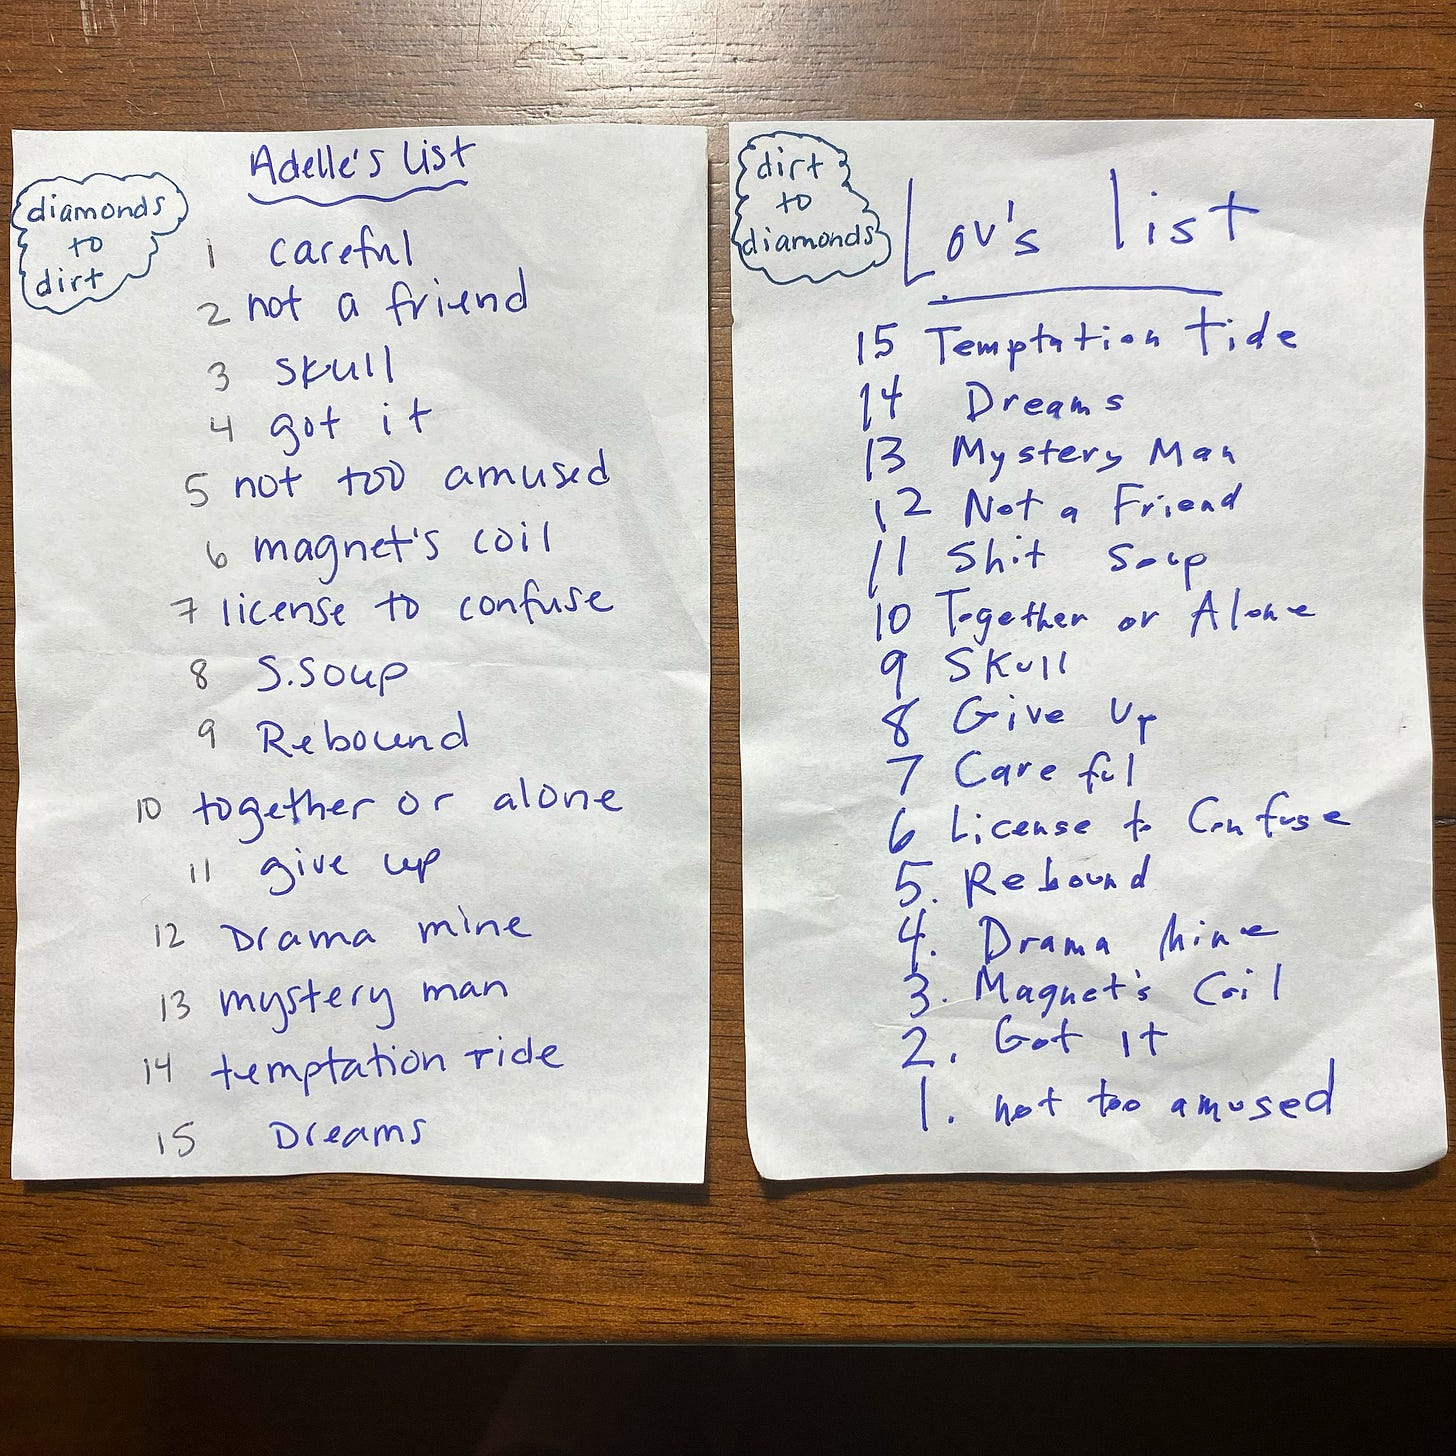 Adelle's List
diamonds
to
dirt
1 careful
2 not a friend
3 skull
4 got it
5 not too amused
6 magnet's coil
7 license to confuse
8 S.Soup
9 Rebound
10 together or alone
11 give up
12 Drama mine
13 mystery man
14 temptation ride
15 Dreams
dirt
to
diamonds
Lov's list
15 Temptation Tide
14 Dreams
13 Mystery Man
12 Not a Friend
11 Shit Soup
10 Together or Alone
9 Skull
8 Give Up
7 Careful
6 License to Confuse
5. Rebound
4. Drama Mine
3. Magnet's Coil
2. Got it
1. not too amused